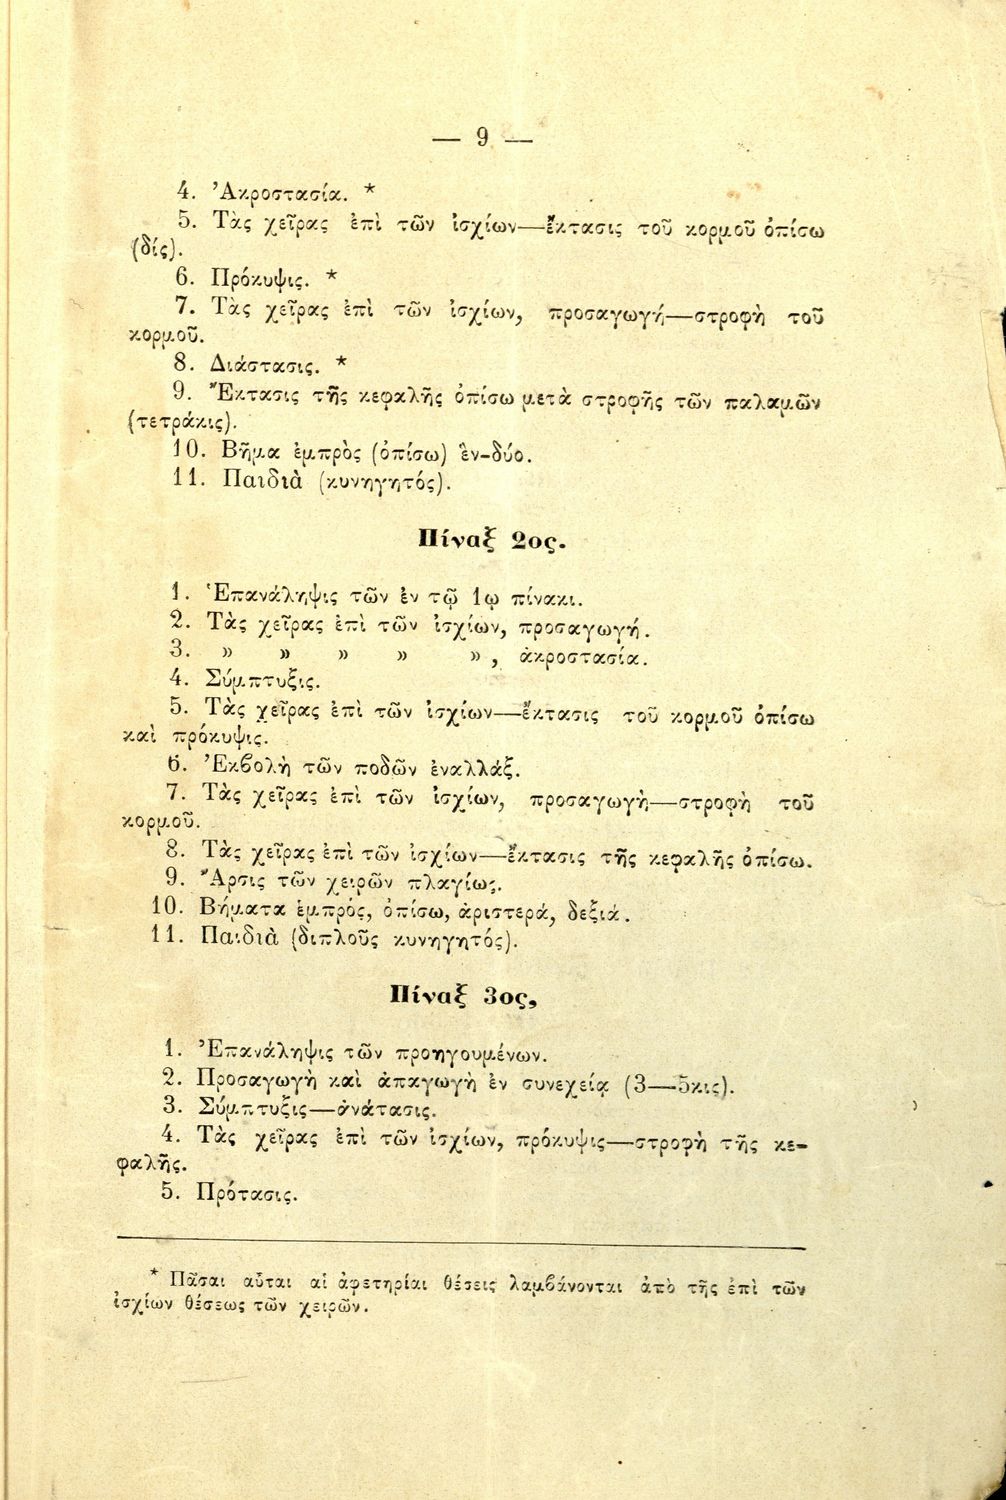 — 9 —
4. Ἀκροστασία. *
5. Τὰς χεῖρας ἐπὶ τῶν ἰσχίων—ἔκτασις τοῦ κορμοῦ ὀπίσω
(δίς).
6. Πρόκυψις. *
7. Τὰς χεῖρας ἐπὶ τῶν ἰσχίων, προσαγωγή—στροφὴ τοῦ
κορμοῦ.
8. Διάστασις. *
9. Ἔκτασις τῆς κεφαλῆς ὀπίσω μετὰ στροφῆς τῶν παλαμῶν
(τετράκις).
10. Βῆμα ἐμπρὸς (ὀπίσω) ἓν-δύο.
11. Παιδιὰ (κυνηγητός).
Πίναξ 2ος.
1. Ἐπανάληψις τῶν ἐν τῷ 1ῳ πίνακι.
2. Τὰς χεῖρας ἐπὶ τῶν ἰσχίων, προσαγωγή.
3. » » » » » , ἀκροστασία.
4. Σύμπτυξις.
5. Τὰς χεῖρας ἐπὶ τῶν ἰσχίων—ἔκτασις τοῦ κορμοῦ ὀπίσω
καὶ πρόκυψις.
6. Ἐκβολὴ τῶν ποδῶν ἐναλλάξ.
7. Τὰς χεῖρας ἐπὶ τῶν ἰσχίων, προσαγωγὴ—στροφὴ τοῦ
κορμοῦ.
8. Τὰς χεῖρας ἐπὶ τῶν ἰσχίων—ἔκτασις τῆς κεφαλῆς ὀπίσω.
9. Ἄρσις τῶν χειρῶν πλαγίως.
10. Βήματα ἐμπρός, ὀπίσω, ἀριστερά, δεξιά.
11. Παιδιὰ (διπλοῦς κυνηγητός).
Πίναξ 3ος,
1. Ἐπανάληψις τῶν προηγουμένων.
2. Προσαγωγὴ καὶ ἀπαγωγὴ ἐν συνεχείᾳ (3—5κις).
3. Σύμπτυξις—ἀνάτασις.
4. Τὰς χεῖρας ἐπὶ τῶν ἰσχίων, πρόκυψις—στροφὴ τῆς κε-
φαλῆς.
5. Πρότασις.
* Πᾶσαι αὗται αἱ ἀφετηρίαι θέσεις λαμβάνονται ἀπὸ τῆς ἐπὶ τῶν
ἰσχίων θέσεως τῶν χειρῶν.